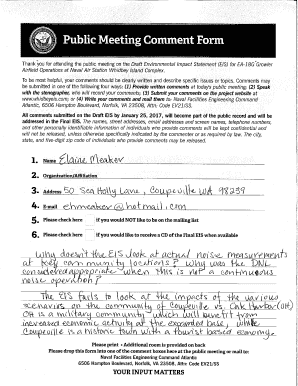 Public Meeting Comment Form
Thank you for attending the public meeting on the Draft Environmental Impact Statement (EIS) for EA-18G Growler
Airfield Operations at Naval Air Station Whidbey Island Complex.
To be most helpful, your comments should be clearly written and describe specific issues or topics. Comments may
be submitted in one of the following four ways: (1) Provide written comments at today's public meeting; (2) Speak
with the stenographer, who will record your comments; (3) Submit your comments on the project website at
www.whidbeyeis.com; or (4) Write your comments and mail them to: Naval Facilities Engineering Command
Atlantic, 6506 Hampton Boulevard, Norfolk, VA 23508, Attn: Code EV21/SS.
All comments submitted on the Draft EIS by January 25, 2017, will become part of the public record and will be
addressed in the Final EIS. The names, street addresses, email addresses and screen names, telephone numbers,
and other personally identifiable information of individuals who provide comments will be kept confidential and
will not be released, unless otherwise specifically indicated by the commenter or as required by law. The city,
state, and five-digit zip code of individuals who provide comments may be released.
1. Name Elaine Meaker
2. Organization/Affiliation
3. Address 50 Sea Holly Lane, Coupeville WA 98239
4. E-mail ehmeaker@hotmail.com
5. Please check here if you would NOT like to be on the mailing list
6. Please check here if you would like to receive a CD of the Final EIS when available
Why doesn't the EIS look at actual noise measurements
at key community locations? Why was the DNL
considered appropriate when this is not a continuous
noise operation?
The EIS fails to look at the impacts of the various
scenarios on the community of Coupeville vs. Oak Harbor (OH)
OH is a military community which will benefit from
increased economic activity at the expanded base, while
Coupeville is a historic town with a tourist based economy.
Please print • Additional room is provided on back
Please drop this form into one of the comment boxes here at the public meeting or mail to:
Naval Facilities Engineering Command Atlantic
6506 Hampton Boulevard, Norfolk, VA 23508, Attn: Code EV21/SS
YOUR INPUT MATTERS